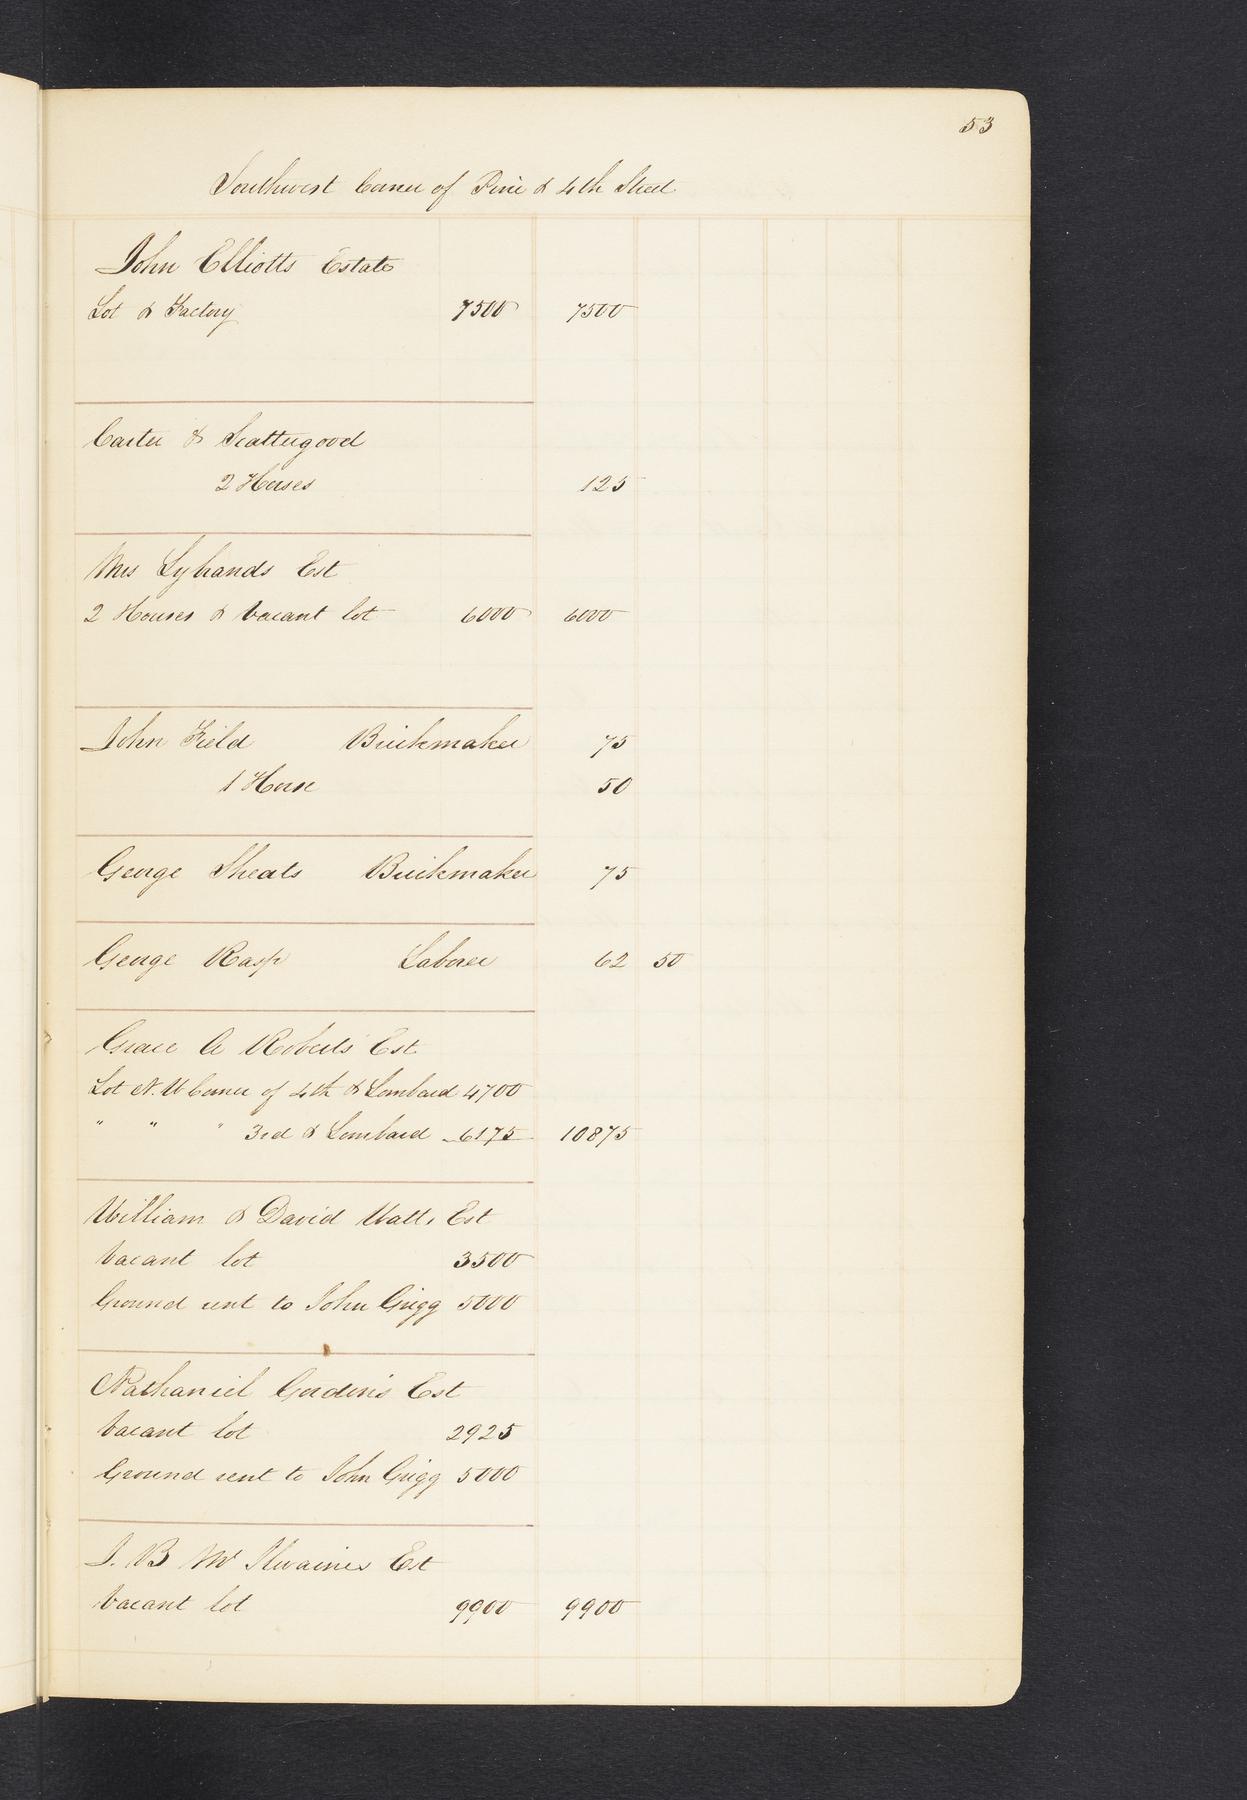 53
Southwest Corner of Pine & 4th Street
John Elliotts Estate
Lot & Factory 7500 7500
Carter & Scattergood
2 Horses 125
Mrs Lybrands Est
2 Houses & Vacant lot 6000 6000
John Field Brickmaker 75
1 Horse 50
George Sheats Brickmaker 75
George Rasp Laborer 62 50
Grace A Roberts Est
Lot N. W Corner of 4th & Lombard 4700
" " " 3rd & Lombard 6175 10875
William & David Watts Est
Vacant lot 3500
Ground rent to John Grigg 5000
Nathaniel Gordon's Est
Vacant lot 2925
Ground rent to John Grigg 5000
J. B Mc Ilvaines Est
Vacant lot 9900 9900